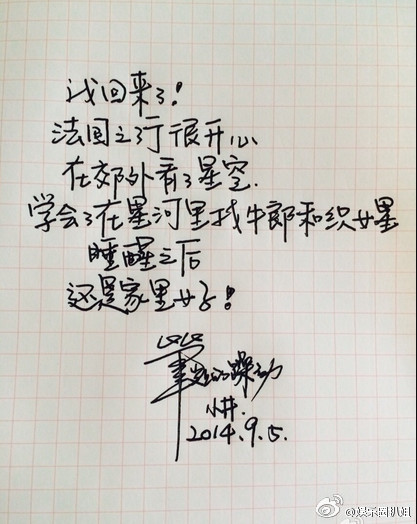 我回来了!
法国之行很开心
在郊外看了星空.
学会了在星河里找牛郎和织女星
睡醒之后
还是家里好!
的躁动
小井.
2014.9.5.
@娱乐圈扒姐